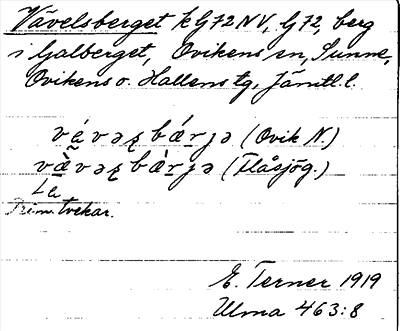 Vävelsberget k G72 NV, G72, berg
i Galberget, Ovikens sn, Sunne,
Ovikens o. Hallens tg, Jämtl. l.
vávəʂbǽrjə (Ovik N.)
væ̀vəʂbæ̀rjə (Flåsjög.)
tvekar.
E. Terner 1919
Ulma 463:8